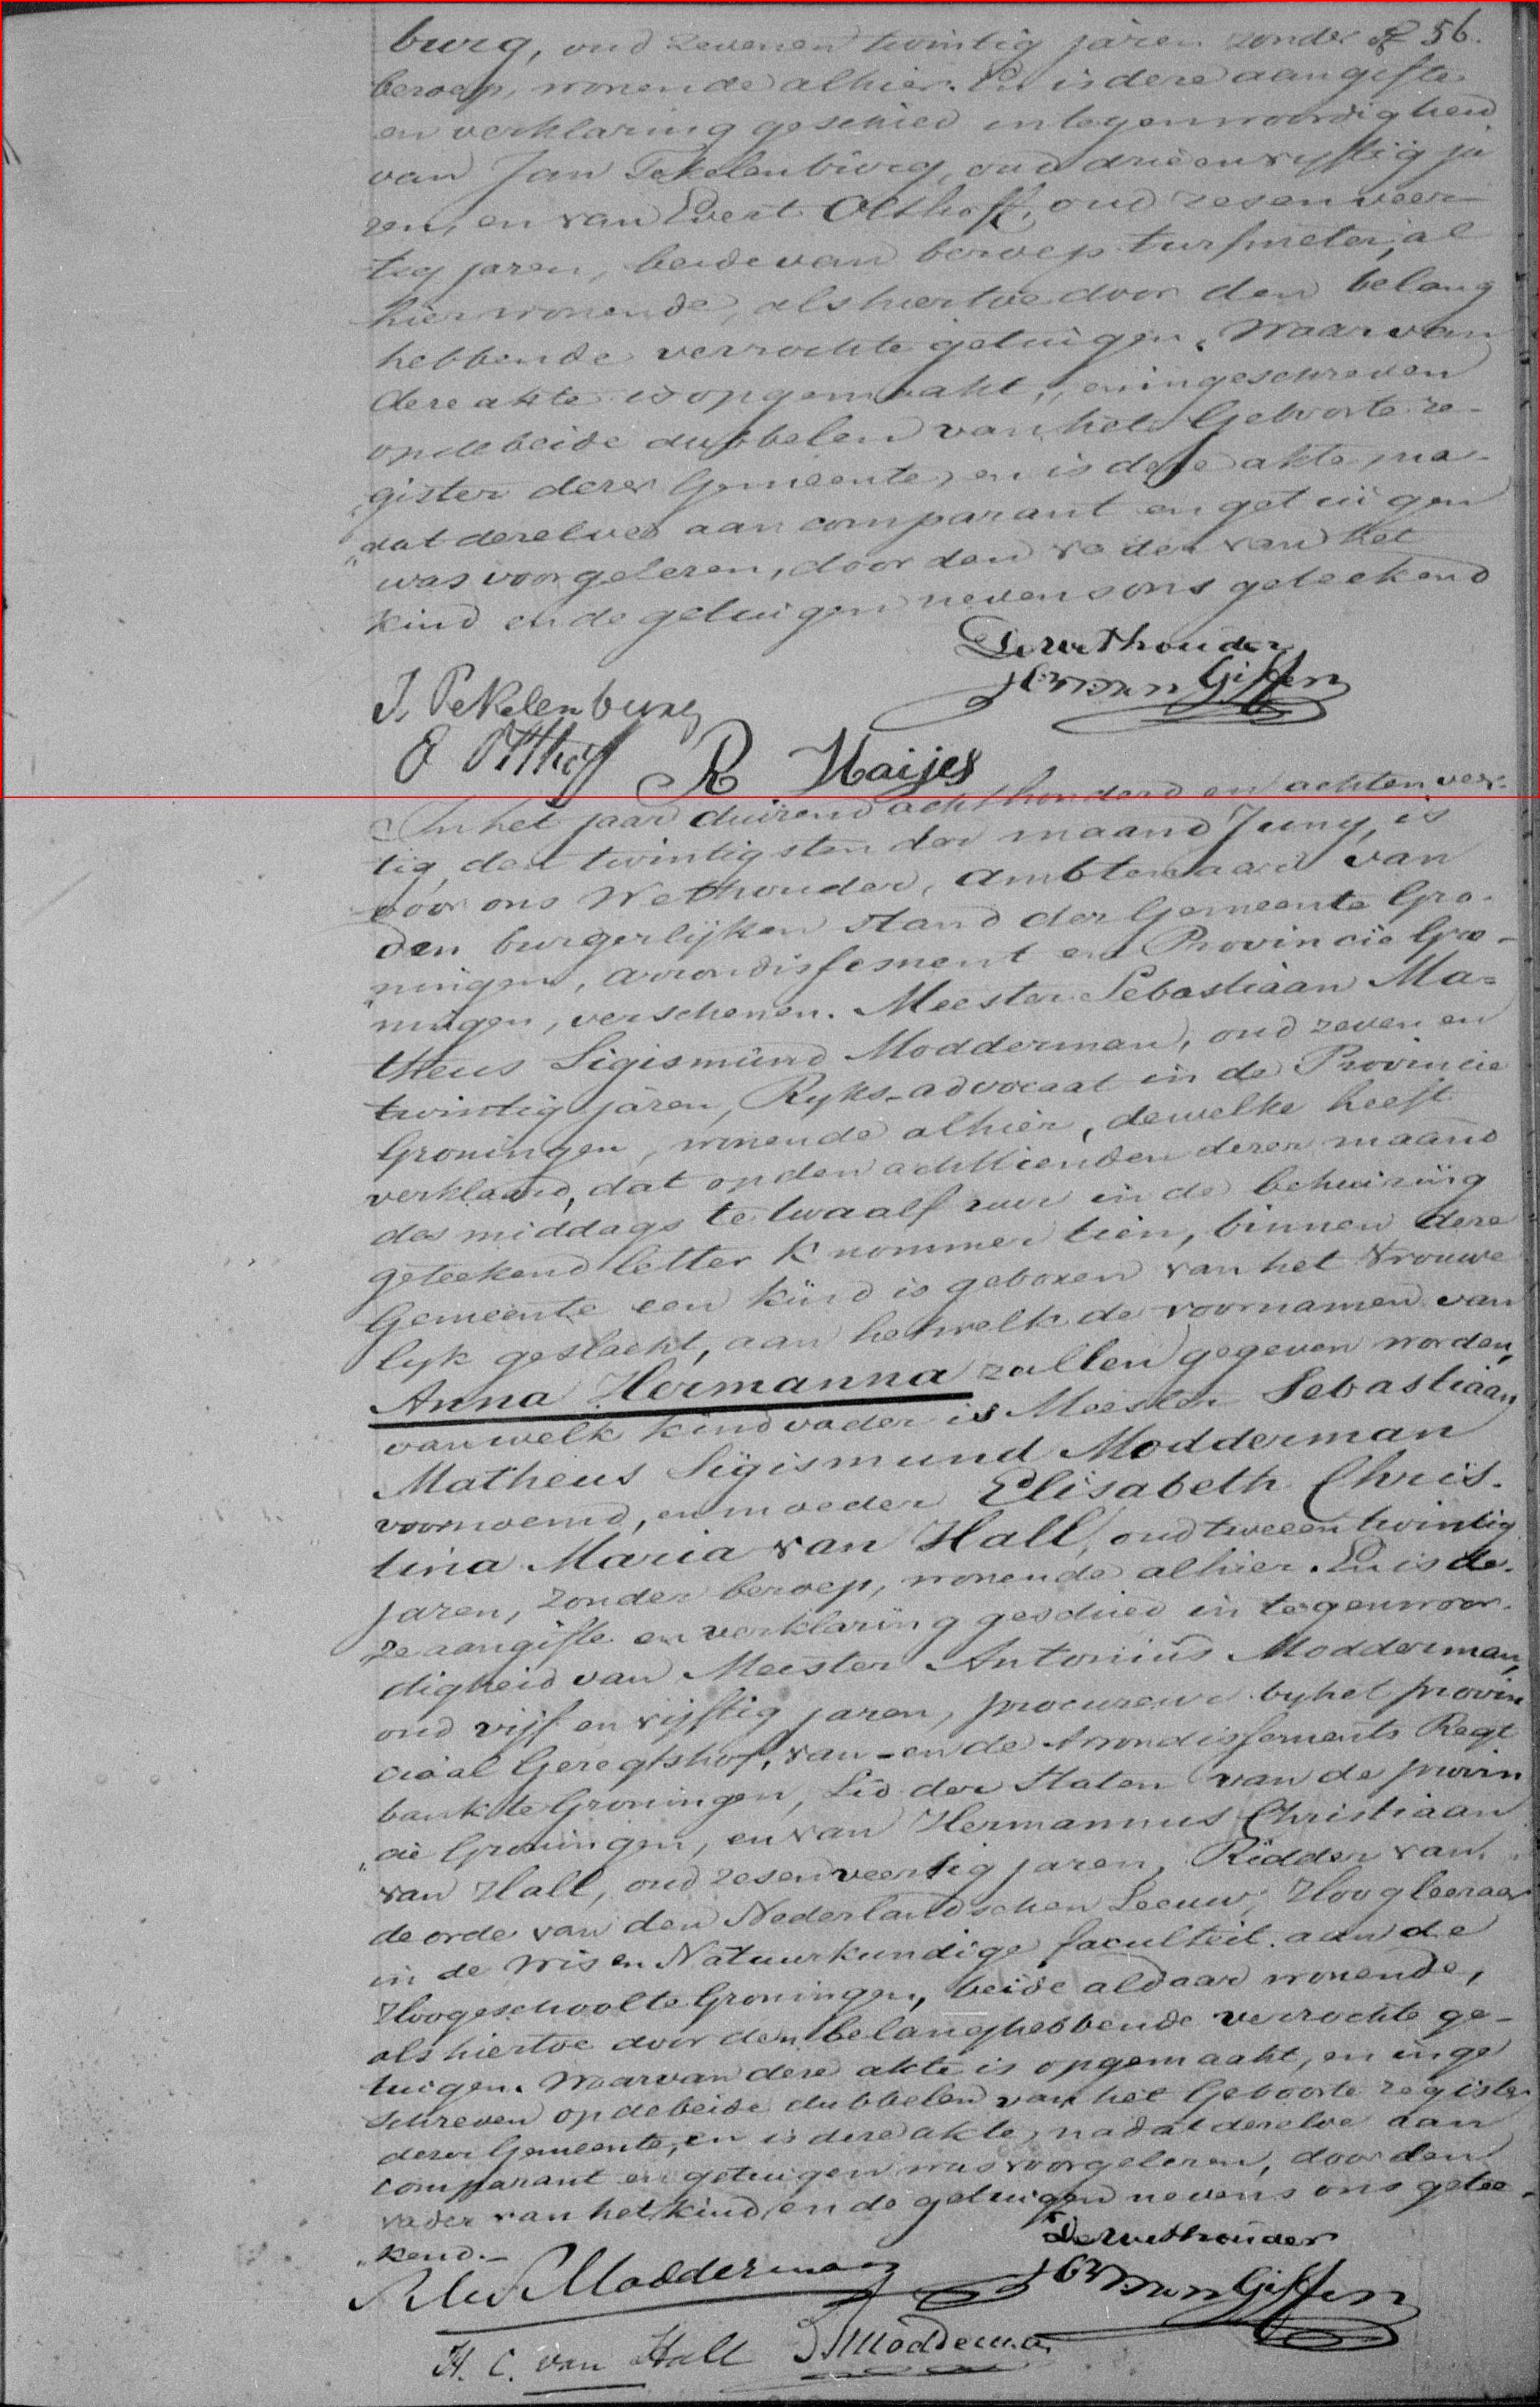 burg, oud zevenen twintig jaren zonder 56.
beroep, wonende alhier. En is deze aangifte
en verklaring geschied in tegenwoordigheid
van Jan Tekelenburg, oud drieenvyftig ja
ren, en van Evert Olthoff, oud zesenveer
tig jaren, beide van beroep turfmeter, al
hier wonende, als hiertoe door den belang
hebbende verzochte getuigen. Waarvan
deze akte is opgemaakt, en ingeschreven
op de beide dubbelen van het Geboorte re-
gister dezer Gemeente, en is deze akte, na-
"dat dezelve aan comparant en getuigen
was voorgelezen, door den vader van het
kind en de getuigen nevens ons geteekend
De wethouder
van Giffen
J. Tekelenburg
E Olthoff R Haijes
In het jaar duizend achthonderd en achtenveer-
tig, den twintigsten der maand Juny, is
voor ons Wethouder, Ambtenaar van
den burgerlijken stand der Gemeente Gro-
ningen, arrondissement en Provincie Gro-
"ningen, verschenen. Meester Sebastiaan Ma=
theus Sigismund Modderman, oud zeven en
twintig jaren, Ryks-advocaat in de Provincie
Groningen, wonende alhier, dewelke heeft
verklaard, dat op den achttienden dezer maand
des middags te twaalf uur in de behuizing
geteekend letter K nommer tien, binnen deze
Gemeente een kind is geboren van het vrouwe
lyk geslacht, aan hetwelk de voornamen van
Anna Hermanna zullen gegeven worden,
van welk kind vader is Meester Sebastiaan
Matheus Sigismund Modderman
voornoemd, en moeder Elisabeth Chris-
tina Maria van Hall, oud tweeen twintig
jaren, zonder beroep, wonende alhier. En is de-
ze aangifte en verklaring geschied in tegenwoor-
digheid van Meester Antonius Modderman,
oud vijf en vijftig jaren, procureur by het provin
ciaal Geregtshof, van - en de Arrondissements Regt
bank te Groningen, Lid der Staten van de provin
"cie Groningen, en van Hermannus Christiaan
van Hall, oud zesenveertig jaren, Ridder van
de orde van den Nederlandschen Leeuw, Hoogleeraar
in de Wis en Natuurkundige faculteit aan de
Hoogeschool te Groningen, beide aldaar wonende,
als hiertoe door den belanghebbende verzochte ge-
tuigen. Waarvan deze akte is opgemaakt, en inge
schreven op de beide dubbelen van het Geboorte register
dezer Gemeente, en is deze akte, nadat dezelve aan
comparant en getuigen was voorgelezen, door den
vader van het kind en de getuigen nevens ons getee-
"kend.-
De wethouder
Modderman van Giffen
H. C. van Hall Modderman